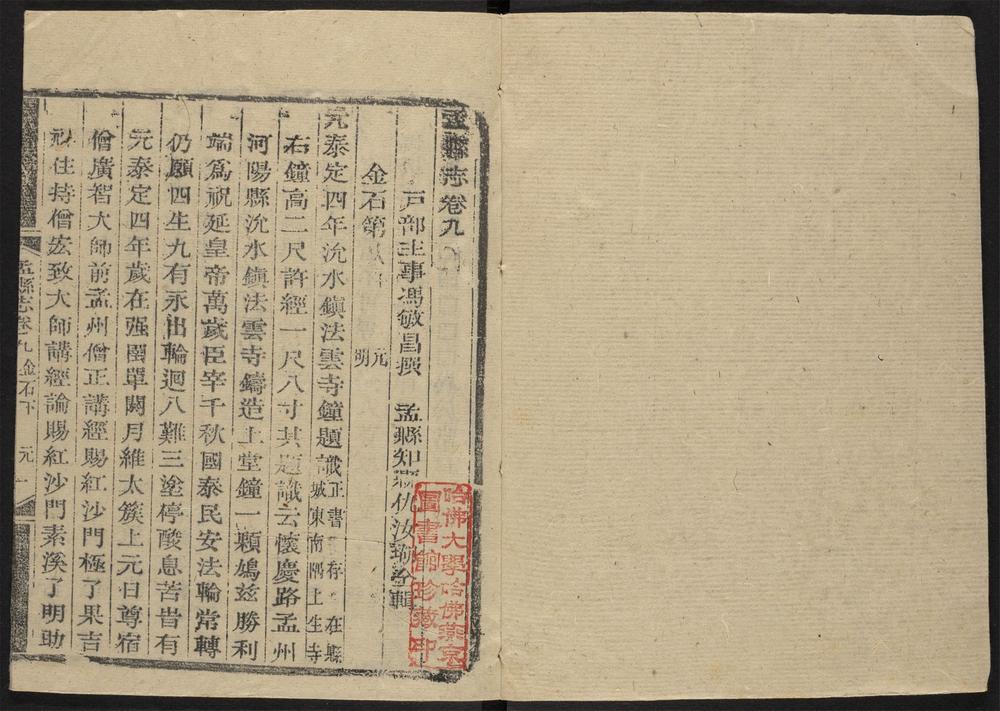 孟縣志卷九
戶部主事馮敏昌撰　孟縣知縣仇汝瑚仝輯
金石第　元
明
元泰定四年沇水鎮法雲寺鐘題識正書　存　在縣
城東南隅上生寺
右鐘高二尺許經一尺八寸其題識云懷慶路孟州
河陽縣沇水鎮法雲寺鑄造上堂鐘一顆鳩茲勝利
端爲祝延皇帝萬歲臣宰千秋國泰民安法輪常轉
仍願四生九有永出輪迴八難三塗停酸息苦昔有
元泰定四年歲在强圉單閼月維太簇上元日尊宿
僧廣智大師前孟州僧正講經賜紅沙門極了果吉
祥住持僧宏致大師講經論賜紅沙門素溪了明助
孟縣志卷九　金石下　元　一
哈佛大學哈佛燕京
圖書館珍藏印